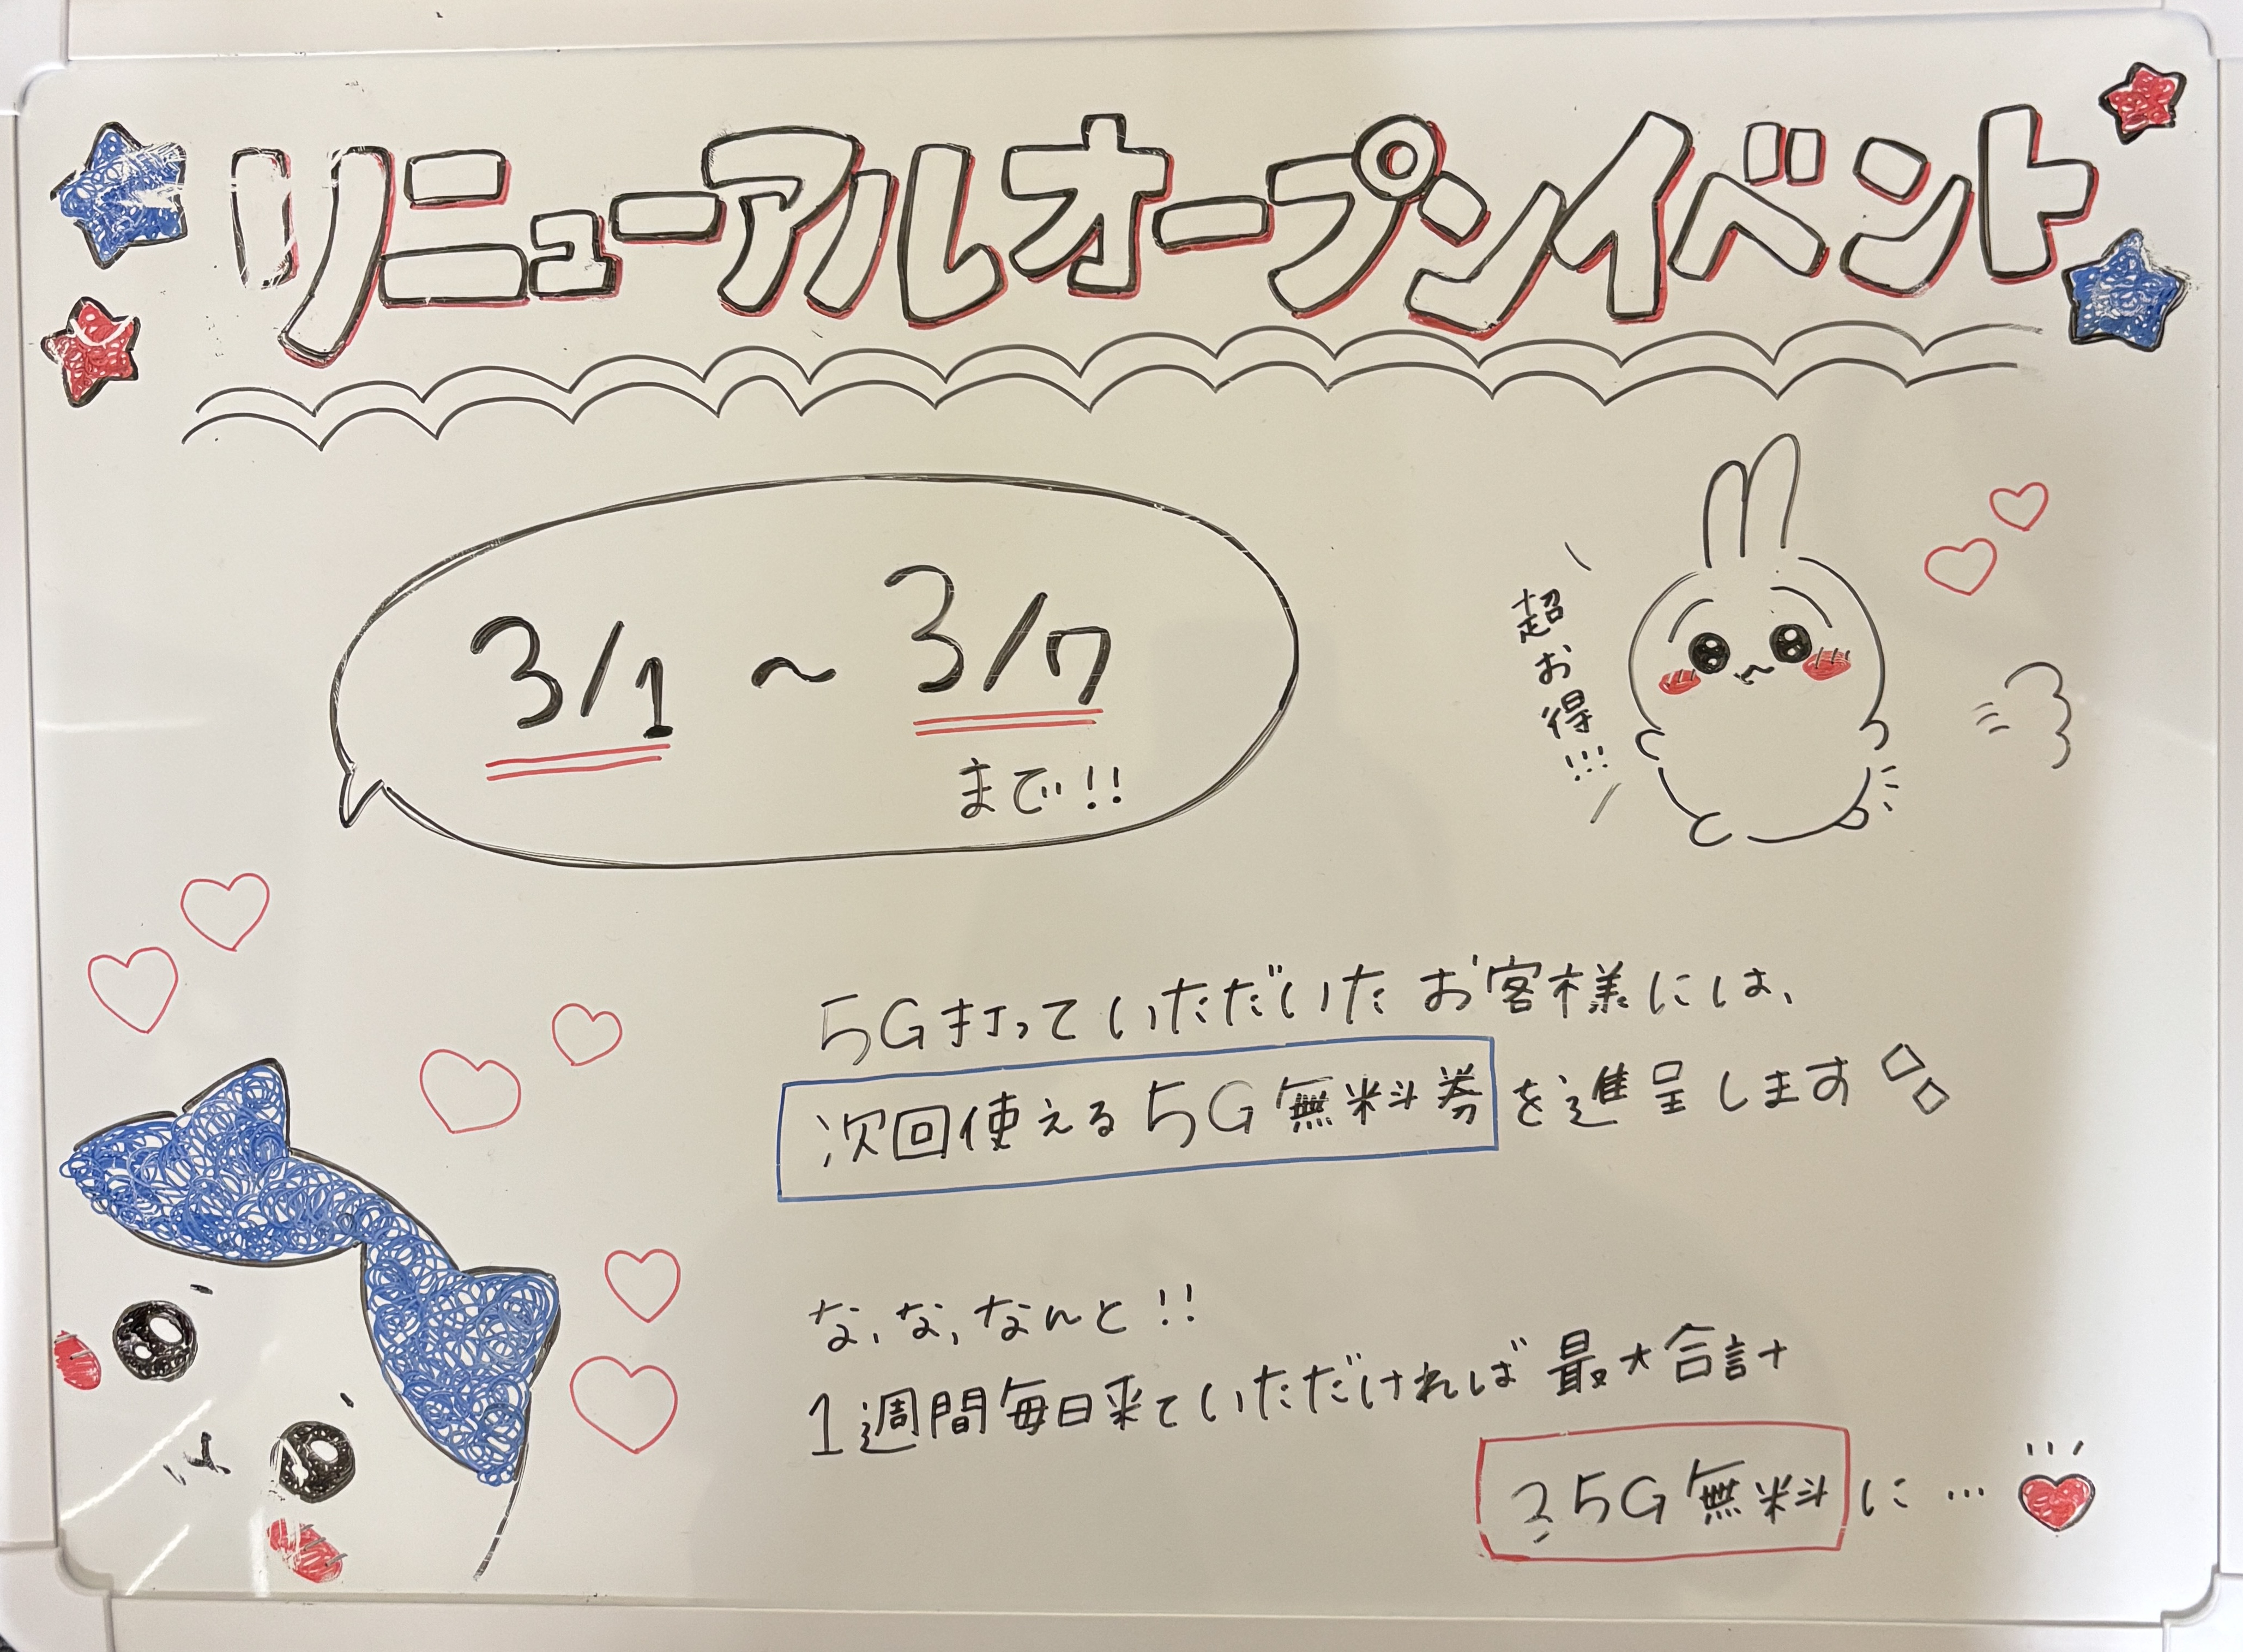 リニューアルオープンイベント
3/1 ~ 3/7
まで!!
超お得!!!
5G打っていただいたお客様には、
次回使える5G無料券を進呈します
な、な、なんと!!
1週間毎日来ていただければ最大合計
35G無料に…